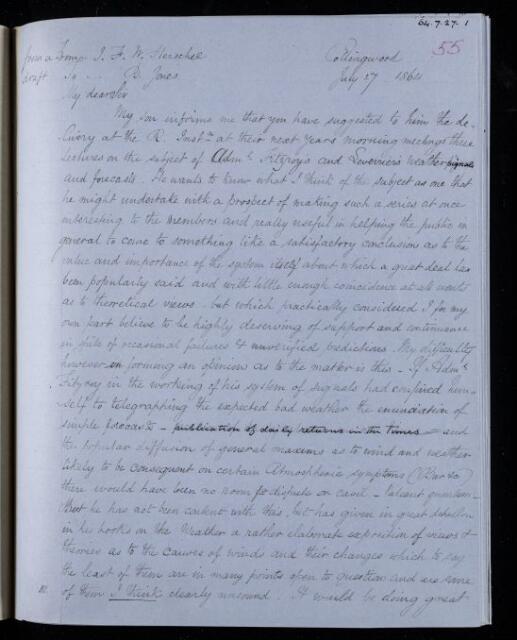 64.7.27.1
55
from a From J. F. W. Herschel Collingwood
draft To B. Jones July 27 1864
My dear Sir
My son informs me that you have suggested to him the de-
livery at the R. Instn at their next years morning meetings three
Lectures on the subject of Adml Fitzroy's and Leverrier's weather signals
and forecasts. He wants to know what I think of the subject as one that
he might undertake with a prospect of making such a series at once
interesting to the members and really useful in helping the public in
general to come to something like a satisfactory conclusion as to the
value and importance of the system itself about which a great deal has
been popularly said and with little enough coincidence at all events
as to theoretical views - but which practically considered I for my
own part believe to be highly deserving of support and continuance
in spite of occasional failures & unverified predictions. My difficulty
however in forming an opinion as to the matter is this - If Adml
Fitzroy in the working of his system of signals had confined him-
self to telegraphing the expected bad weather the enunciation of
simple forecasts - publication of daily returns in the Times - and
the popular diffusion of general maxims as to wind and weather
likely to be consequent on certain Atmospheric symptoms
there would have been no room for dispute or cavil -
But he has not been content with this, but has given in great detail
in his books on the Weather a rather elaborate exposition of views &
theories as to the causes of winds and their changes which to say
the least of them are in many points open to question and are some
of them I think clearly unsound. It would be doing great